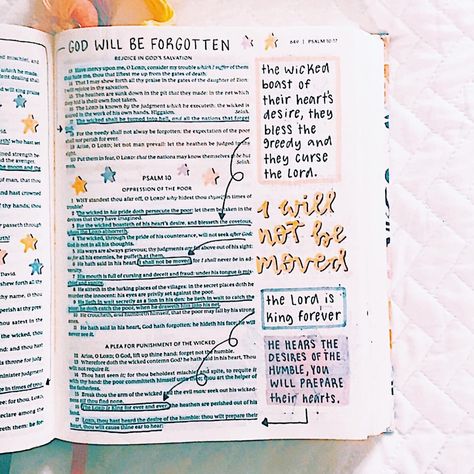 GOD WILL BE FORGOTTEN
649 | PSALM 10:17
REJOICE IN GOD'S SALVATION
13 Have mercy upon me, O LORD; consider my trouble which I suffer of them
that hate me, thou that liftest me up from the gates of death:
14 That I may shew forth all thy praise in the gates of the daughter of Zion:
I will rejoice in thy salvation.
15 The heathen are sunk down in the pit that they made: in the net which
they hid is their own foot taken.
16 The LORD is known by the judgment which he executeth: the wicked is
snared in the work of his own hands. Higgaion. Selah.
17 The wicked shall be turned into hell, and all the nations that forget
God.
18 For the needy shall not alway be forgotten: the expectation of the poor
shall not perish for ever.
19 Arise, O LORD; let not man prevail: let the heathen be judged in thy
sight.
20 Put them in fear, O LORD: that the nations may know themselves to be but
men. Selah.
PSALM 10
OPPRESSION OF THE POOR
1 Why standest thou afar off, O LORD? why hidest thou thyself in times of
trouble?
2 The wicked in his pride doth persecute the poor: let them be taken in the
devices that they have imagined.
3 For the wicked boasteth of his heart's desire, and blesseth the covetous,
whom the LORD abhorreth.
4 The wicked, through the pride of his countenance, will not seek after God:
God is not in all his thoughts.
5 His ways are always grievous; thy judgments are far above out of his sight:
as for all his enemies, he puffeth at them.
6 He hath said in his heart, I shall not be moved: for I shall never be in ad-
versity.
7 His mouth is full of cursing and deceit and fraud: under his tongue is mis-
chief and vanity.
8 He sitteth in the lurking places of the villages: in the secret places doth he
murder the innocent: his eyes are privily set against the poor.
9 He lieth in wait secretly as a lion in his den: he lieth in wait to catch the
poor: he doth catch the poor, when he draweth him into his net.
10 He croucheth, and humbleth himself, that the poor may fall by his strong
ones.
11 He hath said in his heart, God hath forgotten: he hideth his face; he will
never see it.
A PLEA FOR PUNISHMENT OF THE WICKED
12 Arise, O LORD; O God, lift up thine hand: forget not the humble.
13 Wherefore doth the wicked contemn God? he hath said in his heart, Thou
wilt not require it.
14 Thou hast seen it; for thou beholdest mischief and spite, to requite it
with thy hand: the poor committeth himself unto thee; thou art the helper of
the fatherless.
15 Break thou the arm of the wicked and the evil man: seek out his wicked-
ness till thou find none.
16 The LORD is King for ever and ever: the heathen are perished out of his
land.
17 LORD, thou hast heard the desire of the humble: thou wilt prepare their
heart, thou wilt cause thine ear to hear:
the wicked
boast of
their heart's
desire, they
bless the
greedy and
they curse
the Lord.
i will
not be
moved
the Lord is
king forever
HE HEARS THE
DESIRES OF THE
HUMBLE, YOU
WILL PREPARE
their hearts.